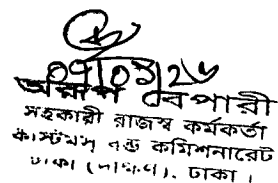 ০৭/০১/২৬
অরূপ বেপারী
সহকারী রাজস্ব কর্মকর্তা
কাস্টমস বন্ড কমিশনারেট
ঢাকা (দক্ষিণ), ঢাকা।